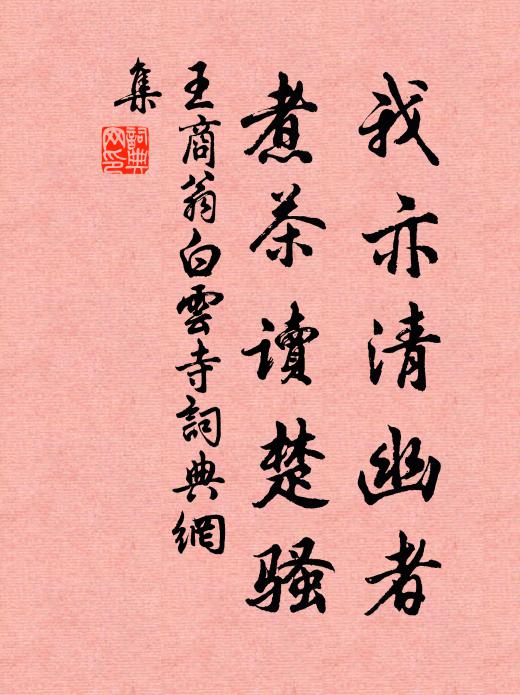 我亦清幽者
煮茶读楚骚
王商翁白雲寺詞典網
集
詞典
网印